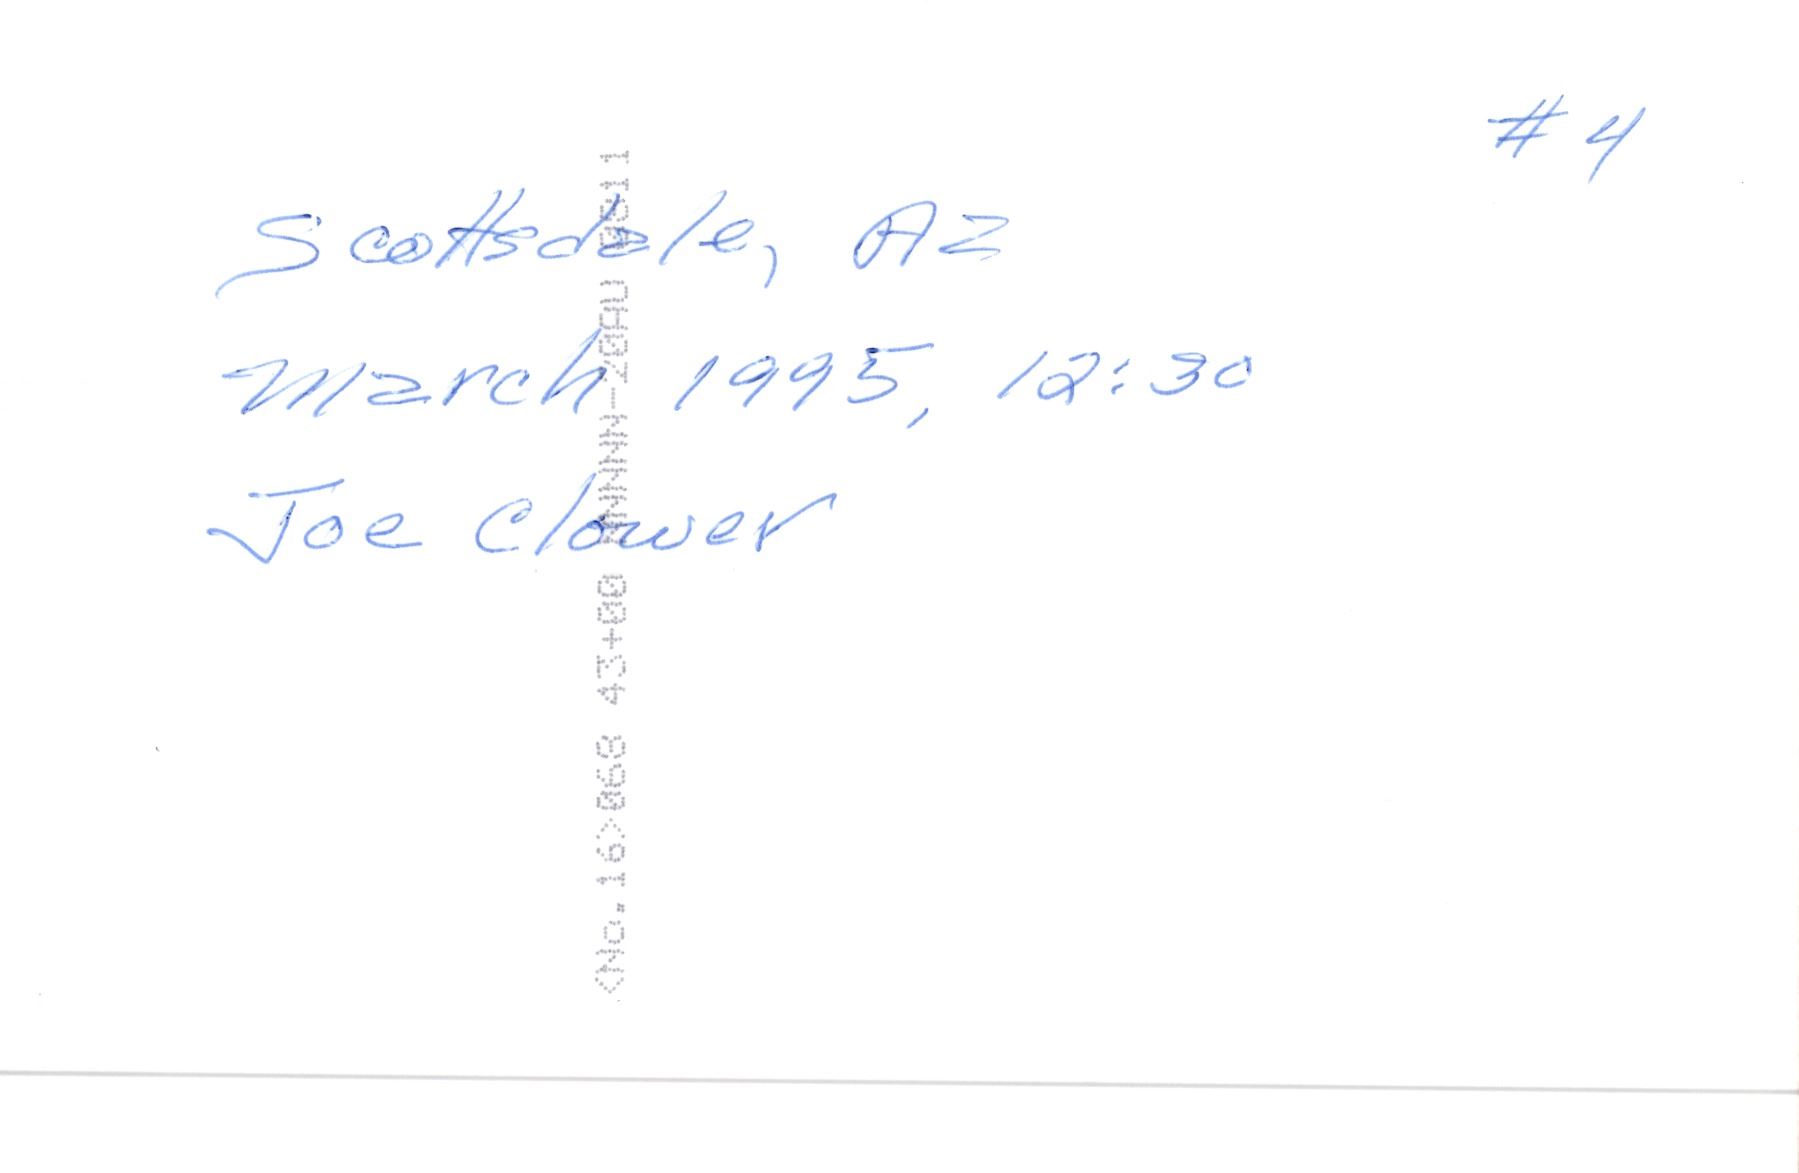 #4
Scottsdale, AZ
March 1995, 12:30
Joe Clower
<No.16>068 43+00 NNNNN-20AU 0011